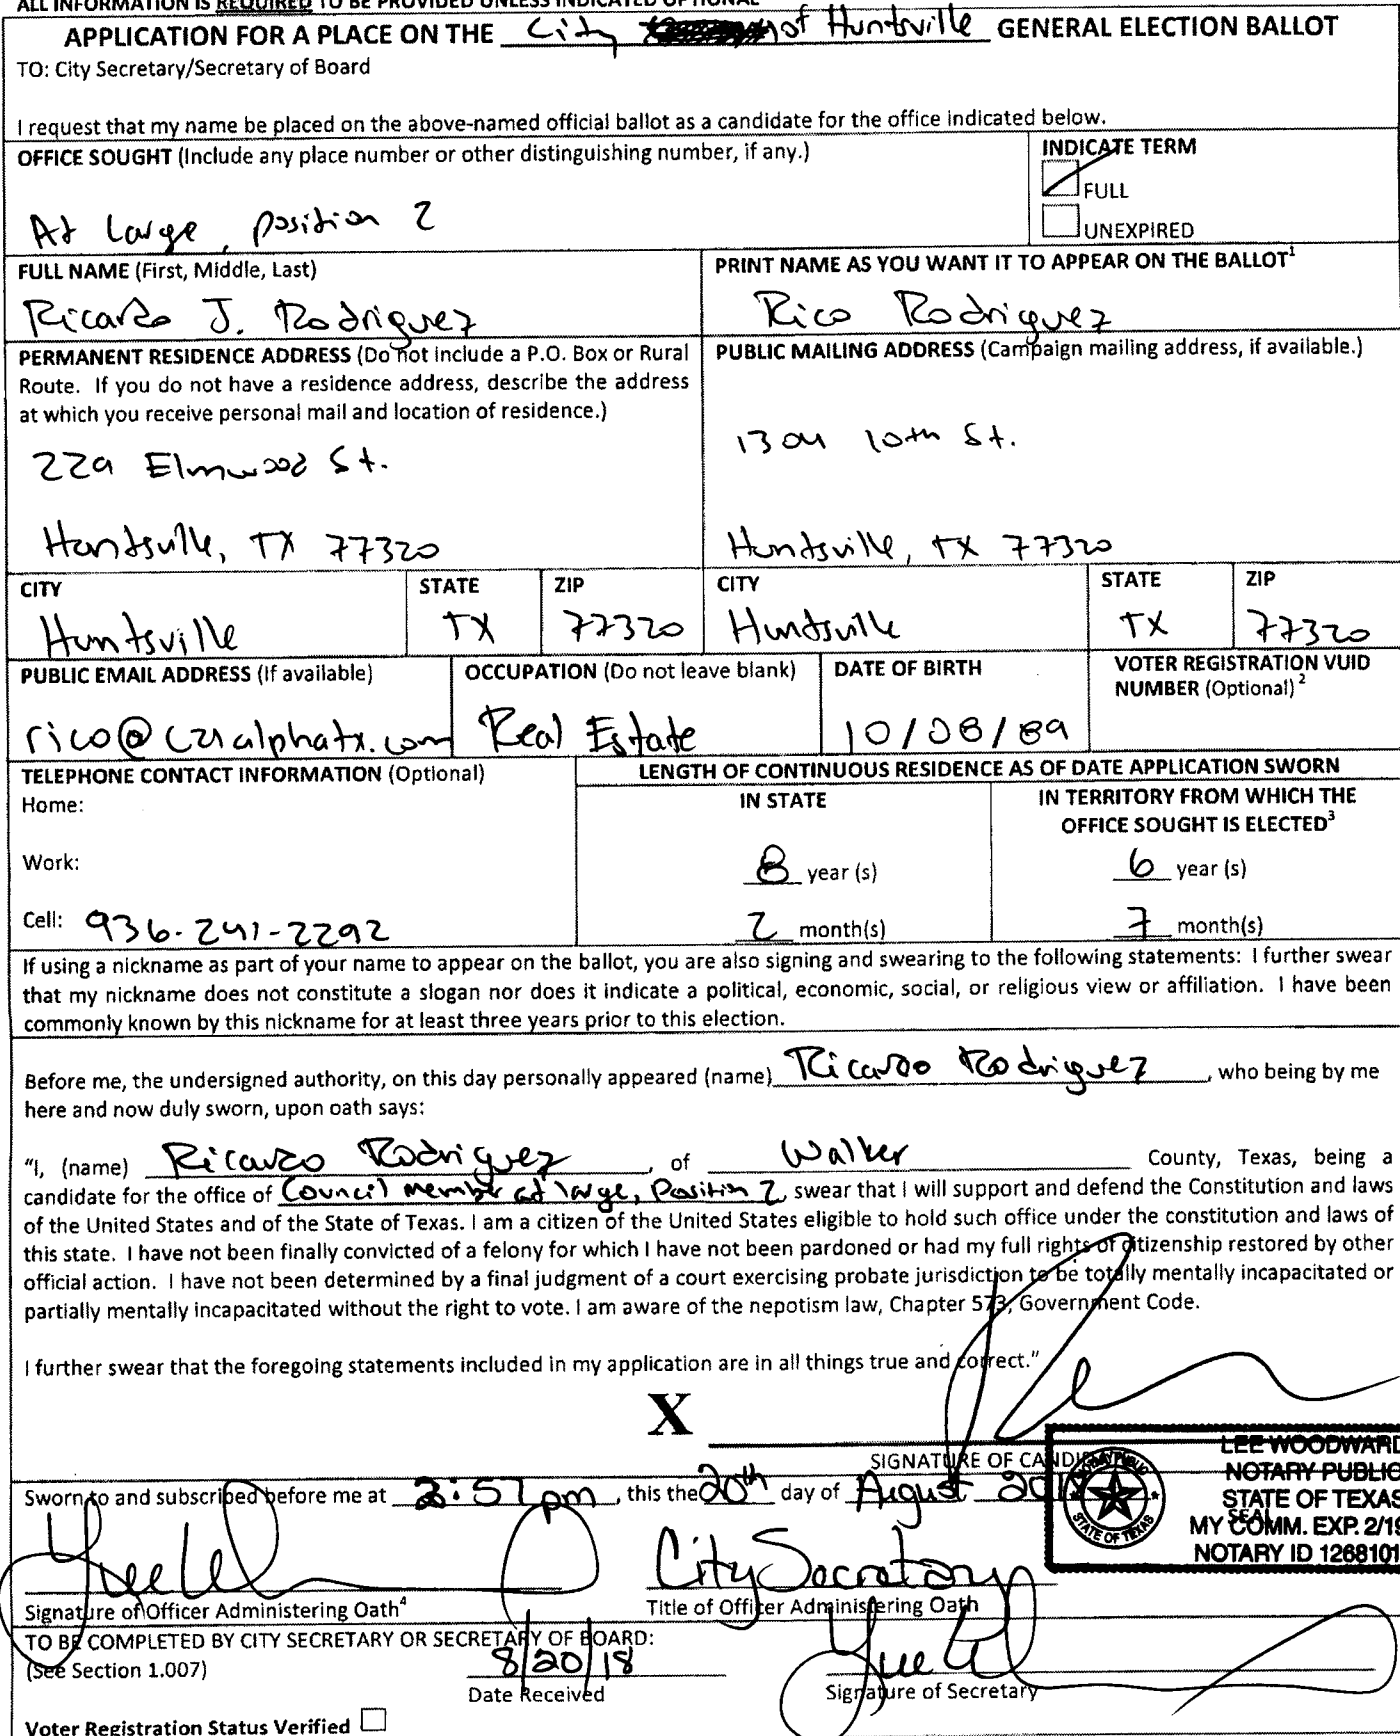 ALL INFORMATION IS REQUIRED TO BE PROVIDED UNLESS INDICATED OPTIONAL
APPLICATION FOR A PLACE ON THE City of Huntsville GENERAL ELECTION BALLOT
TO: City Secretary/Secretary of Board
I request that my name be placed on the above-named official ballot as a candidate for the office indicated below.
OFFICE SOUGHT (Include any place number or other distinguishing number, if any.)
At large, position 2
INDICATE TERM
FULL
UNEXPIRED
FULL NAME (First, Middle, Last)
Ricardo J. Rodriguez
PRINT NAME AS YOU WANT IT TO APPEAR ON THE BALLOT1
Rico Rodriguez
PERMANENT RESIDENCE ADDRESS (Do not include a P.O. Box or Rural
Route. If you do not have a residence address, describe the address
at which you receive personal mail and location of residence.)
229 Elmwood St.
Huntsville, TX 77320
PUBLIC MAILING ADDRESS (Campaign mailing address, if available.)
1304 10th St.
Huntsville, TX 77320
CITY
Huntsville
STATE
TX
ZIP
77320
CITY
Huntsville
STATE
TX
ZIP
77320
PUBLIC EMAIL ADDRESS (If available)
rico@c21alphatx.com
OCCUPATION (Do not leave blank)
Real Estate
DATE OF BIRTH
10/08/89
VOTER REGISTRATION VUID
NUMBER (Optional) 2
TELEPHONE CONTACT INFORMATION (Optional)
Home:
Work:
Cell: 936-241-2292
LENGTH OF CONTINUOUS RESIDENCE AS OF DATE APPLICATION SWORN
IN STATE
8 year(s)
2 month(s)
IN TERRITORY FROM WHICH THE
OFFICE SOUGHT IS ELECTED3
6 year(s)
7 month(s)
If using a nickname as part of your name to appear on the ballot, you are also signing and swearing to the following statements: I further swear
that my nickname does not constitute a slogan nor does it indicate a political, economic, social, or religious view or affiliation. I have been
commonly known by this nickname for at least three years prior to this election.
Before me, the undersigned authority, on this day personally appeared (name) Ricardo Rodriguez, who being by me
here and now duly sworn, upon oath says:
"I, (name) Ricardo Rodriguez, of Walker County, Texas, being a
candidate for the office of Council member at large, Position 2, swear that I will support and defend the Constitution and laws
of the United States and of the State of Texas. I am a citizen of the United States eligible to hold such office under the constitution and laws of
this state. I have not been finally convicted of a felony for which I have not been pardoned or had my full rights of citizenship restored by other
official action. I have not been determined by a final judgment of a court exercising probate jurisdiction to be totally mentally incapacitated or
partially mentally incapacitated without the right to vote. I am aware of the nepotism law, Chapter 573, Government Code.
I further swear that the foregoing statements included in my application are in all things true and correct."
X
SIGNATURE OF CANDI
LEE WOODWARD
NOTARY PUBLIC
STATE OF TEXAS
MY COMM. EXP. 2/19
NOTARY ID 1268101
NOTARY PUBLIC
STATE OF TEXAS
SEAL
Sworn to and subscribed before me at 2:57 pm, this the 20th day of August 201
City Secretary
Signature of Officer Administering Oath4
Title of Officer Administering Oath
TO BE COMPLETED BY CITY SECRETARY OR SECRETARY OF BOARD:
(See Section 1.007)
8/20/18
Date Received
Signature of Secretary
Voter Registration Status Verified